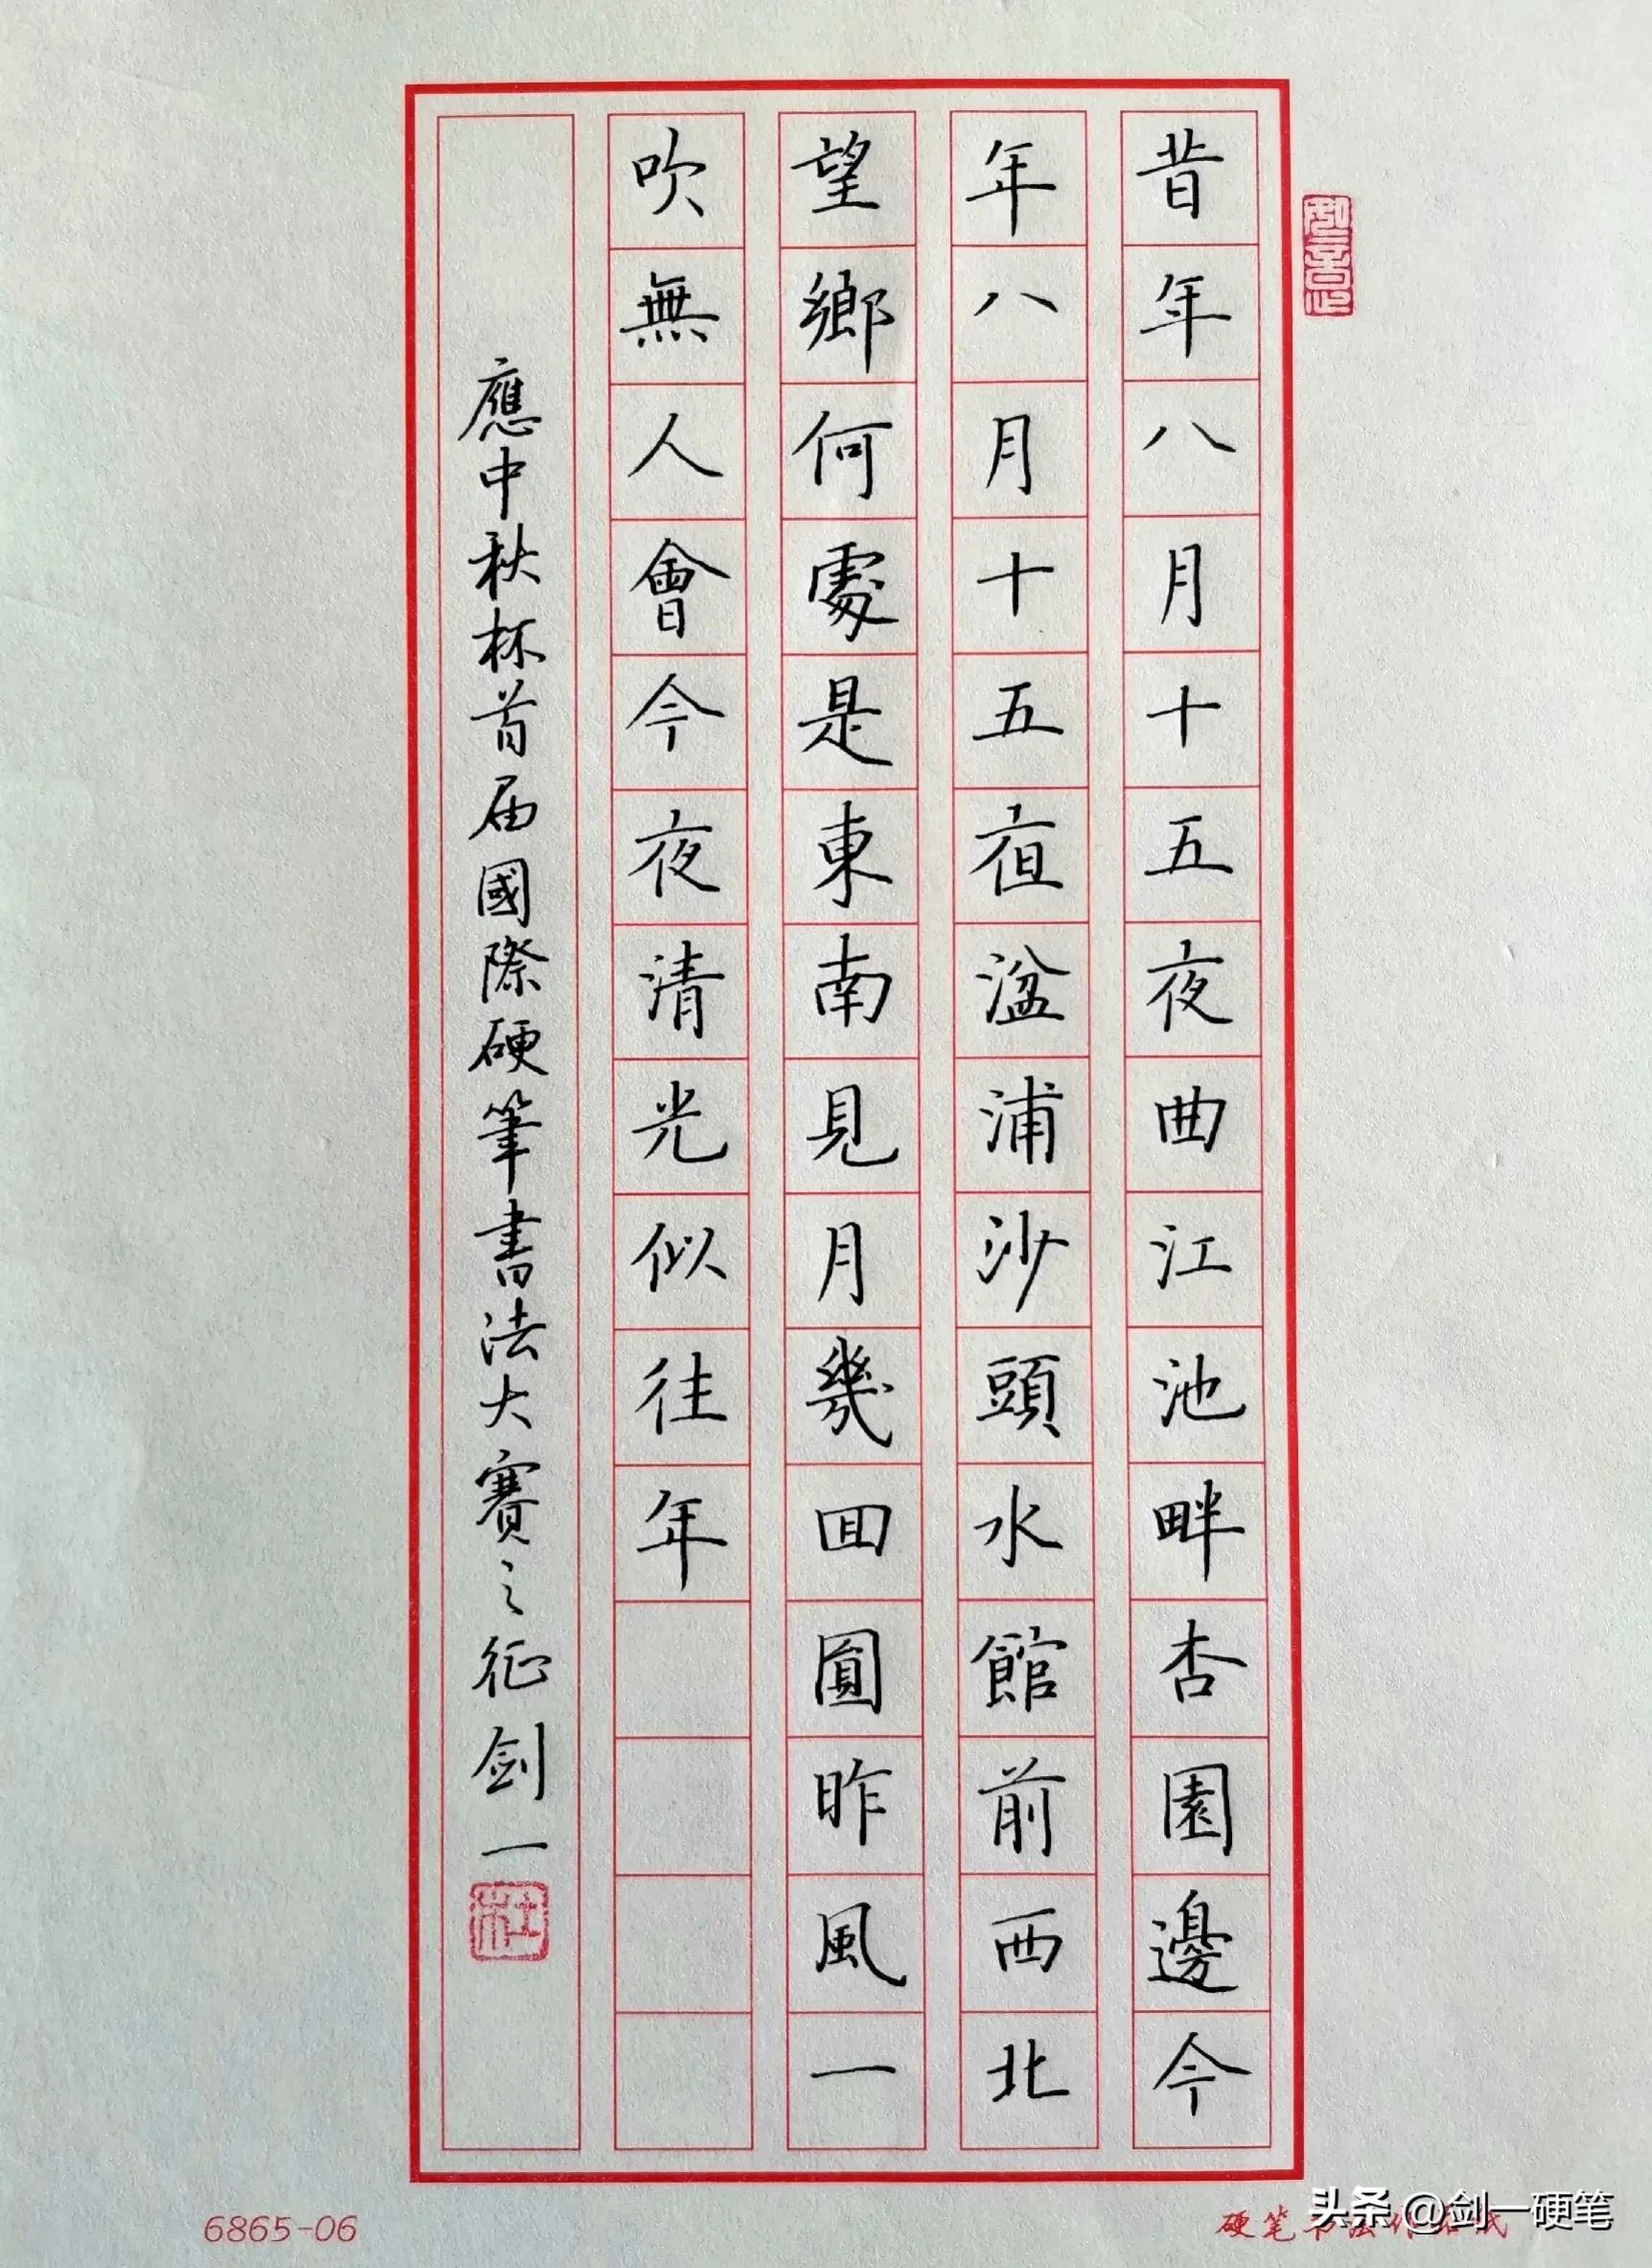 昔年八月十五夜曲江池畔杏園邊今
年八月十五夜湓浦沙頭水館前西北
望鄉何處是東南見月幾回圓昨風一
吹無人會今夜清光似往年
應中秋杯首届國際硬筆書法大賽之征剑一
6865-06
头条 @剑一硬笔